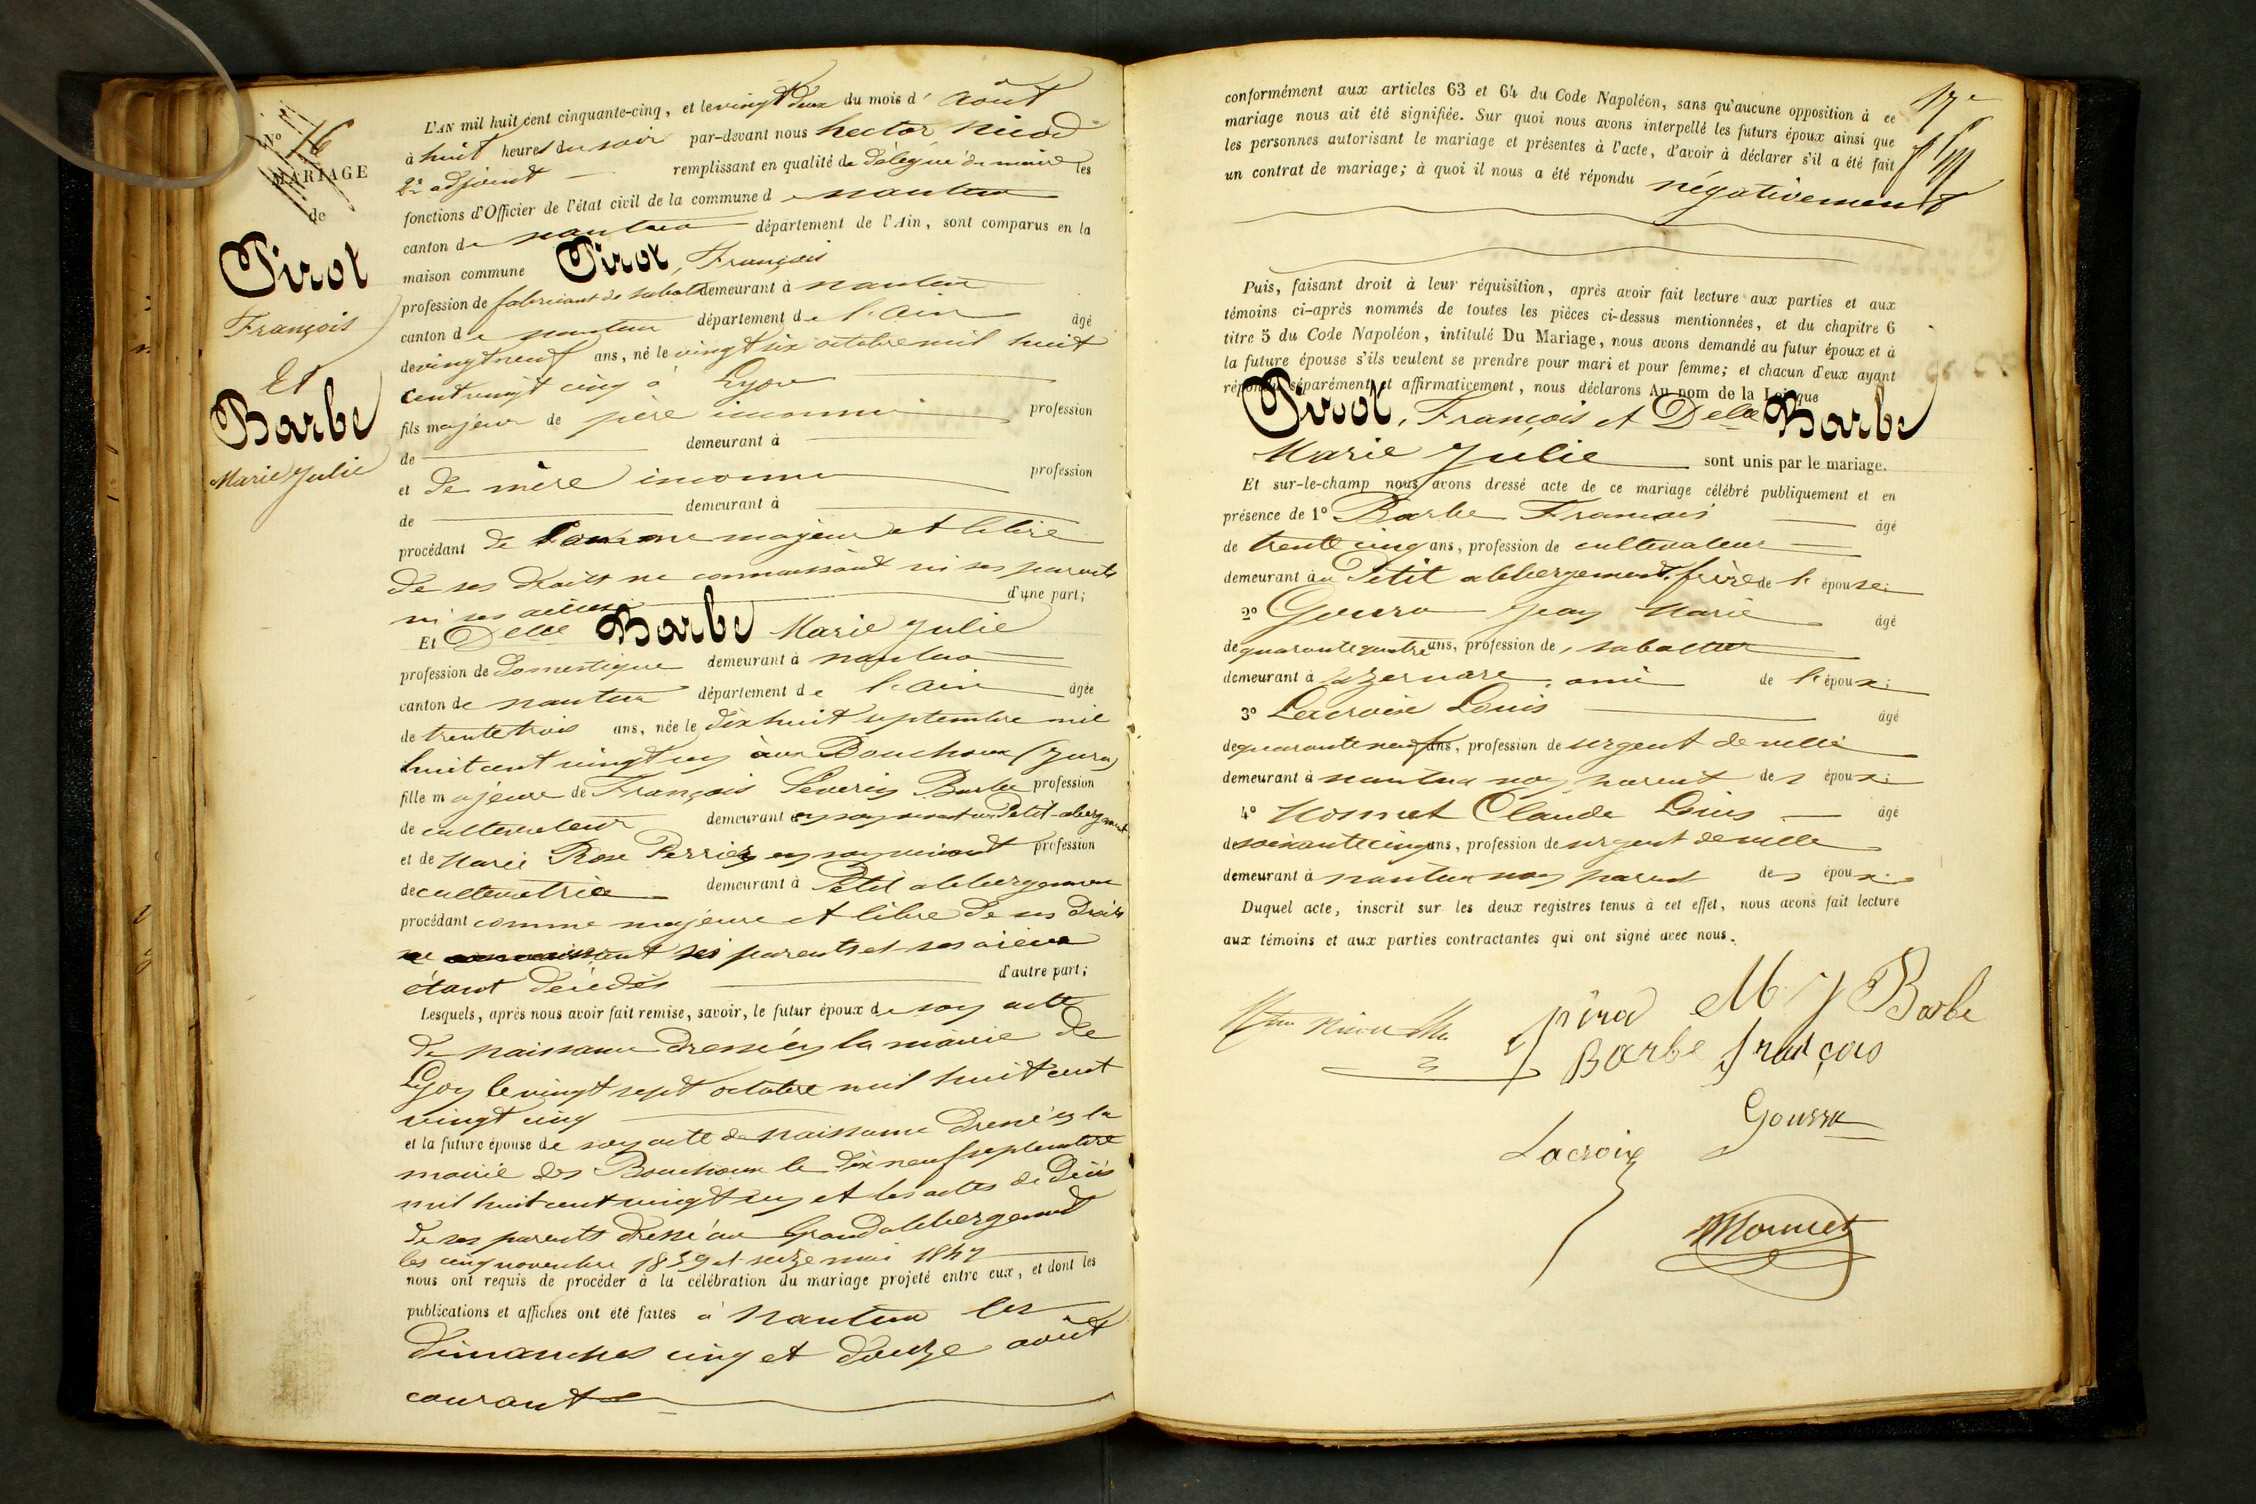 N.° 16
MARIAGE
de
Pirot
François
Et
Barbe
Marie Julie
L'AN mil huit cent cinquante-cinq, et le vingt deux du mois d' août
à huit heures du soir par-devant nous hector Nicod
2e adjoint remplissant en qualité de délégué du maire les
fonctions d'Officier de l'état civil de la commune de nantua
canton de nantua département de l'Ain, sont comparus en la
maison commune Pirot, François
profession de fabricant de sabots demeurant à nantua
canton de nantua département de l'ain âgé
de vingt neuf ans, né le vingt six octobre mil huit
cent vingt cinq à Lyon
fils majeur de père inconnu profession
de demeurant à
et de mère inconnue profession
de demeurant à
procédant de comme majeur et libre
de ses droits ne connaissant ni ses parents
ni ses aïeux d'une part;
Et Delle Barbe Marie Julie
profession de Domestique demeurant à nantua
canton de nantua département de l'ain âgée
de trente trois ans, née le dix huit septembre mil
huit cent vingt un aux Bouchoux (Jura)
fille majeure de François Séverin Barbe profession
de cultivateur demeurant en son vivant au Petit-abergement
et de Marie Rose Perrier en son vivant profession
de cultivatrice demeurant à Petit abbergement
procédant comme majeure et libre de ses droits
ses parents et ses aïeux
étant décédés d'autre part;
Lesquels, après nous avoir fait remise, savoir, le futur époux de son acte
de naissance dressé en la mairie de
Lyon le vingt sept octobre mil huit cent
vingt cinq
et la future épouse de son acte de naissance dressé en la
mairie des Bouchoux le dix neuf septembre
mil huit cent vingt un et les actes de décès
de ses parents dressé au Grand abbergement
les cinq novembre 1839 et seize mai 1847
nous ont requis de procéder à la célébration du mariage projeté entre eux, et dont les
publications et affiches ont été faites à nantua les
dimanches cinq et douze août
courant
17e
conformément aux articles 63 et 64 du Code Napoléon, sans qu'aucune opposition à ce
mariage nous ait été signifiée. Sur quoi nous avons interpellé les futurs époux ainsi que
les personnes autorisant le mariage et présentes à l'acte, d'avoir à déclarer s'il a été fait
un contrat de mariage; à quoi il nous a été répondu négativement
Puis, faisant droit à leur réquisition, après avoir fait lecture aux parties et aux
témoins ci-après nommés de toutes les pièces ci-dessus mentionnées, et du chapitre 6
titre 5 du Code Napoléon, intitulé Du Mariage, nous avons demandé au futur époux et à
la future épouse s'ils veulent se prendre pour mari et pour femme; et chacun d'eux ayant
répondu séparément et affirmativement, nous déclarons Au nom de la Loi que
Pirot, François et Delle Barbe
Marie Julie sont unis par le mariage.
Et sur-le-champ nous avons dressé acte de ce mariage célébré publiquement et en
présence de 1° Barbe François âgé
de trente cinq ans, profession de cultivateur
demeurant au Petit abbergement, frère de l'épouse;
2° Goussa Jean Marie âgé
de quarante quatre ans, profession de sabottier
demeurant à Izernore, ami de l'époux;
3° Lacroix Louis âgé
de quarante neuf ans, profession de sergent de ville
demeurant à nantua non parent des époux;
4° Monnet Claude Louis âgé
de soixante cinq ans, profession de sergent de ville
demeurant à nantua non parent des époux.
Duquel acte, inscrit sur les deux registres tenus à cet effet, nous avons fait lecture
aux témoins et aux parties contractantes qui ont signé avec nous.
M j Barbe
Barbe françois
Goussa
Lacroix
Monnet